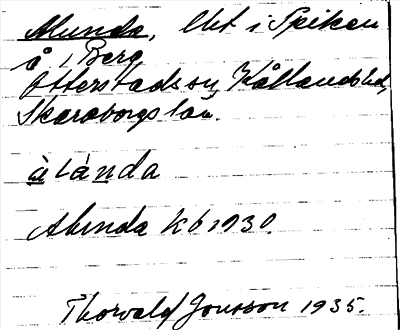 Alunda, lht i Spiken
å 1 Berg,
Otterstads sn, Kållands hd,
Skaraborgs län.
à lánda
Alunda Kb 1930.
Thorvald Jonsson 1935.